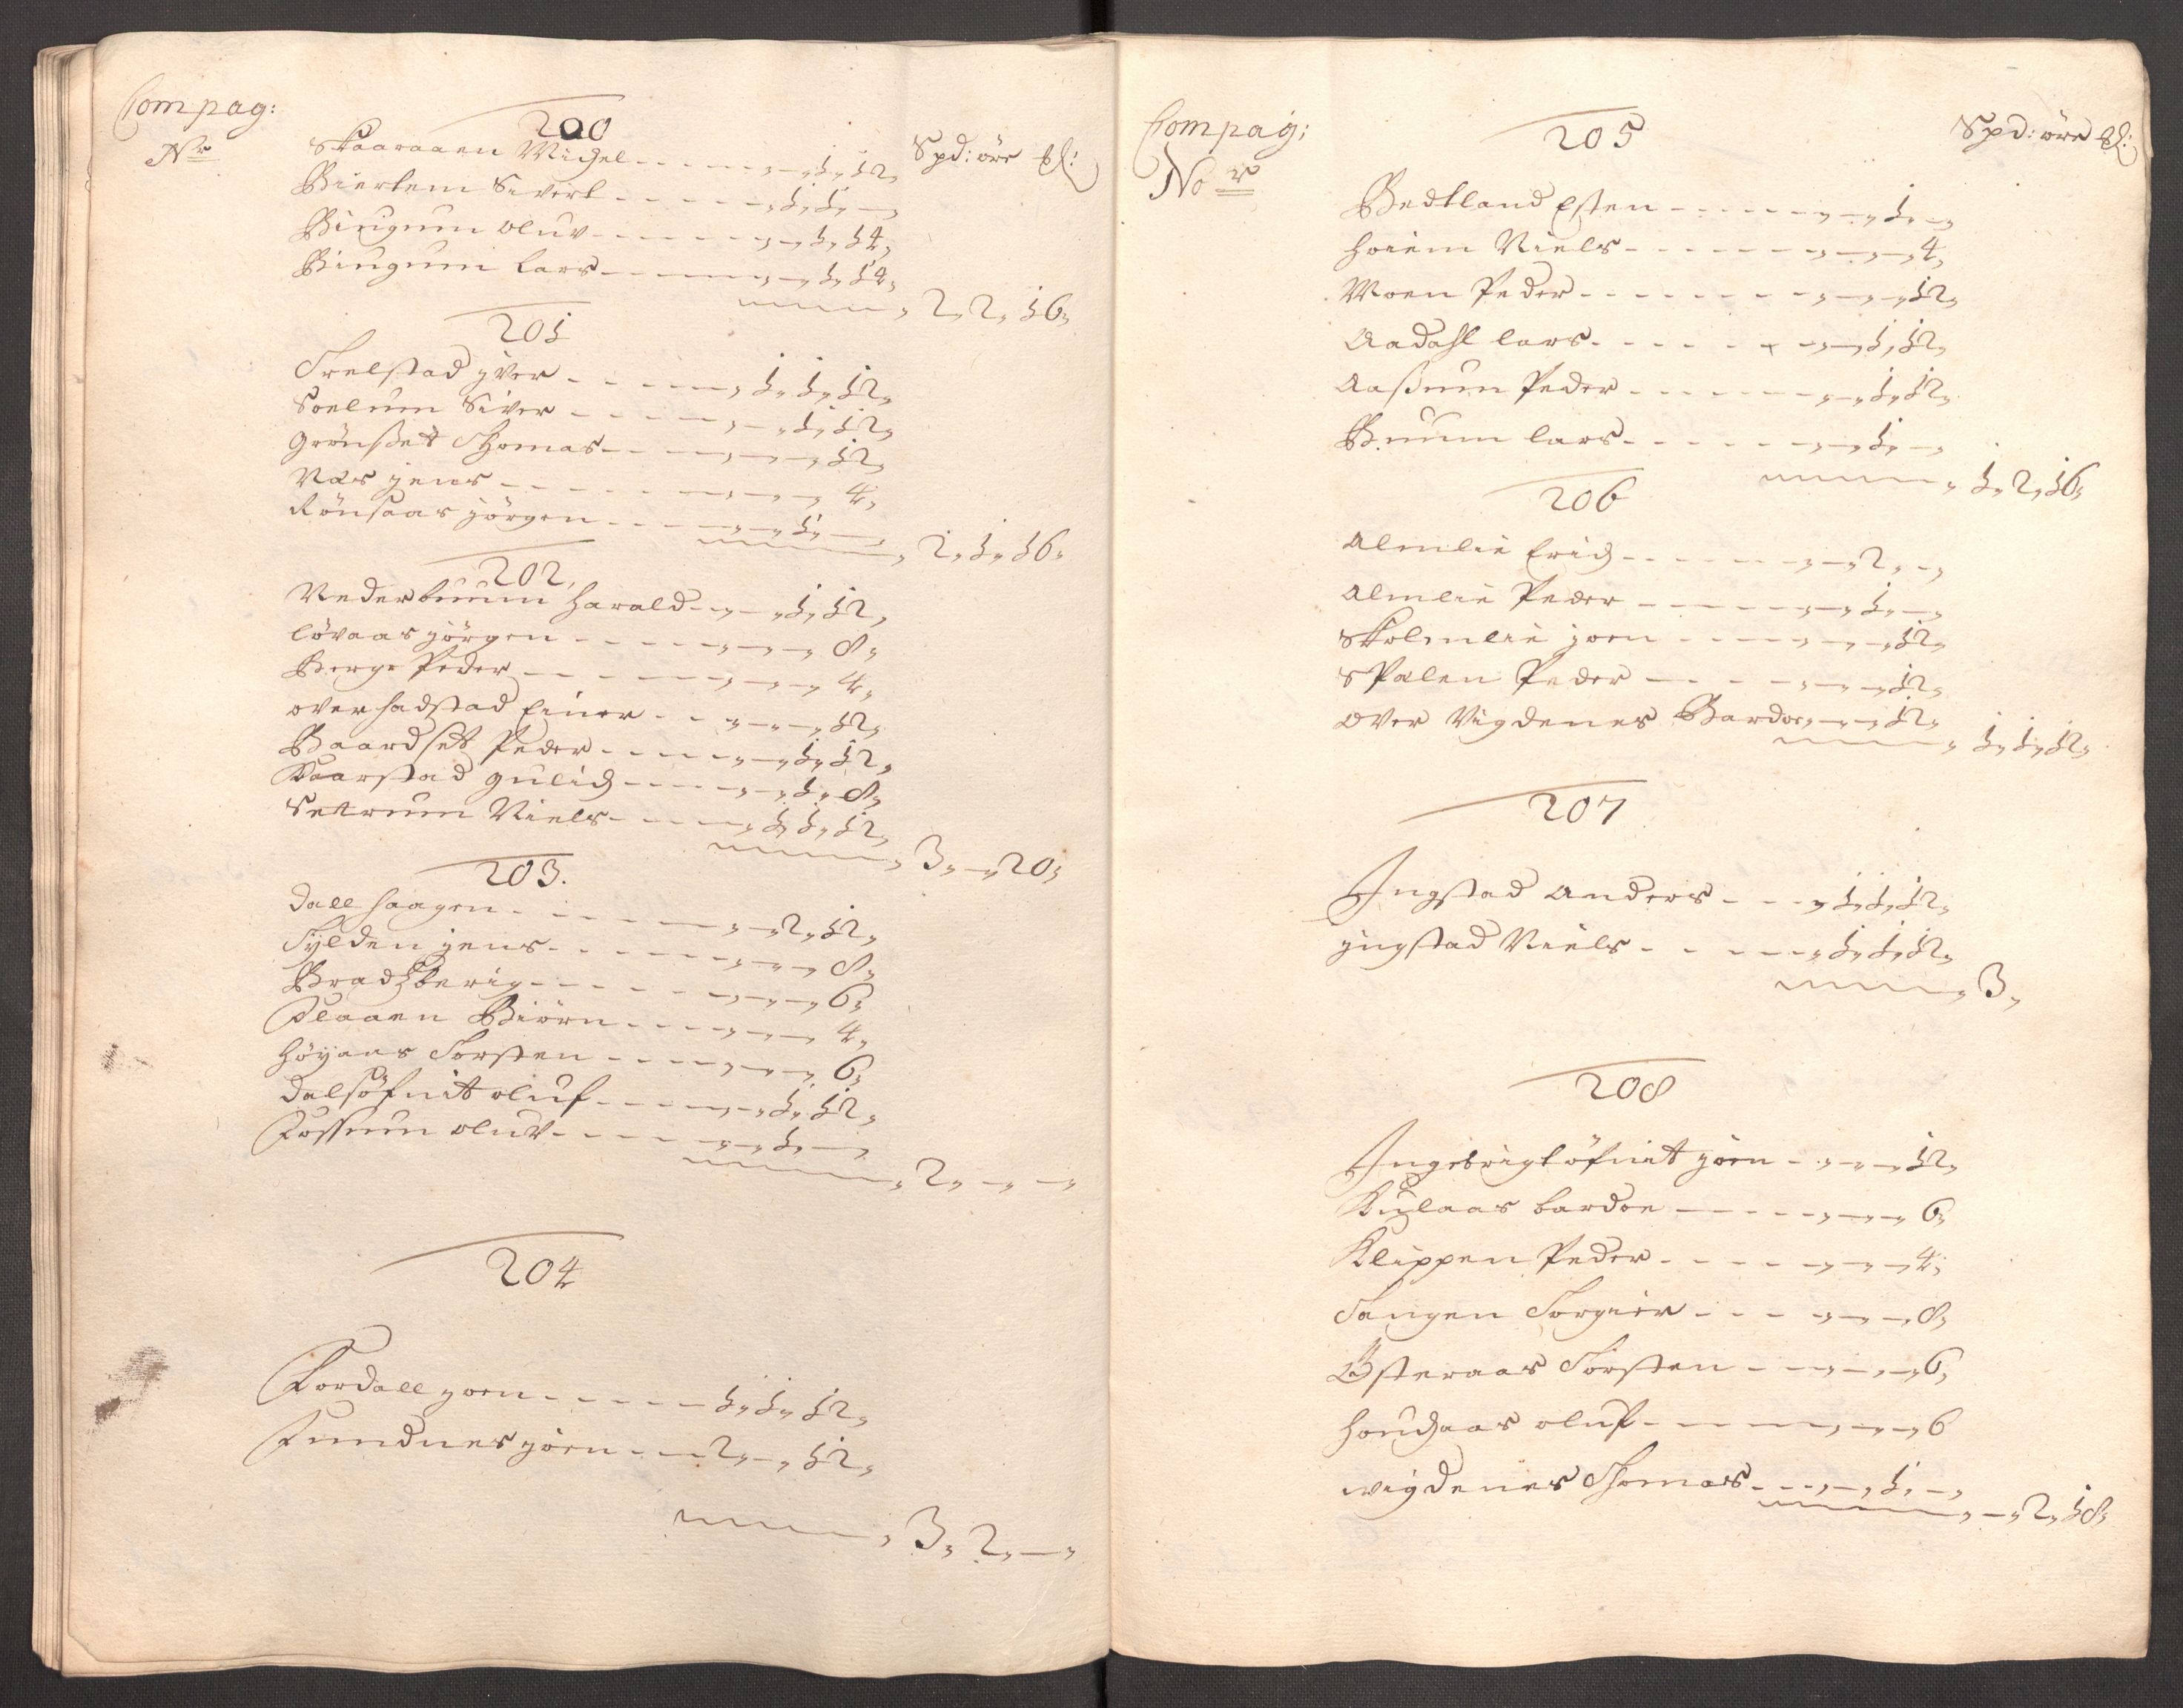 Compag:
Nr
200
Spd: öre
Skaaraaen Michel - - - - „ — „ 1 „ 12 „
Biertem Sivert - - - - „ 1 „ 1 „ — „
Biugum oluv - - - - „ — „ 1 „ 14 „
Biugum lars - - - - „ — „ 1 „ 14 „
„ 2 „ 2 „ 16 „
201
Trelstad yver - - - - „ 1 „ 1 „ 12 „
Soelum Siver - - - - „ — „ 1 „ 12 „
Grönset Thomas - - - - „ — „ — „ 12 „
Næs jens - - - - „ — „ — „ 4 „
Rönsaas jörgen - - - - „ — „ 1 „ — „
„ 2 „ 1 „ 16 „
202
Nederbuum harald - - „ — „ 1 „ 12 „
lövaas jörgen - - - - „ — „ — „ 8 „
Berge Peder - - - - „ — „ — „ 4 „
overhadstad Einer - - „ — „ — „ 12 „
Baardset Peder - - - - „ — „ 1 „ 12 „
Kaarstad gulich - - - - „ — „ 1 „ 8 „
Setrum Niels - - - - „ 1 „ 1 „ 12 „
„ 3 „ — „ 20 „
203.
dall haagen - - - - „ — „ 2 „ 12 „
Tylden jens - - - - „ — „ — „ 8 „
Bradtzberig - - - - „ — „ — „ 6 „
Plaaen Biörn - - - - „ — „ — „ 4 „
höyaas Torsten - - - - „ — „ — „ 6 „
dalsöfnit oluf - - - - „ — „ 1 „ 12 „
Fossum oluv - - - - „ — „ 1 „ — „
„ 2 „ — „ — „
204
Fordall joen - - - - „ 1 „ 1 „ 12 „
Fundnes joen - - - 2 „ — „ 12 „
„ 3 „ 2 „ — „
Compag:
No r
205
Spd: öre
Bedtland Esten - - - - „ — „ 1 „ — „
hoiem Niels - - - - „ — „ — „ 4 „
Moen Peder - - - - „ — „ — „ 12 „
Aadahl lars - - - - „ — „ 1 „ 12 „
Aassum Peder - - - - „ — „ 1 „ 12 „
Buum lars - - - - „ — „ 1 „ — „
„ 1 „ 2 „ 16 „
206
Almlie Erich - - - - „ — „ 2 „ — „
Almlie Peder - - - - „ — „ 1 „ — „
Skolmlie joen - - - - „ — „ — „ 12 „
SPalen Peder - - - - „ — „ — „ 12 „
over Vigdenes Bardoe „ — „ — „ 12 „
„ 1 „ 1 „ 12 „
207
Ingstad Anders - - - „ 1 „ 1 „ 12 „
jngstad Niels - - - - „ 1 „ 1 „ 12 „
„ 3 „
208
Ingebrigtöfnit joen - „ — „ — „ 12 „
Kulaas bardoe - - - - „ — „ — „ 6 „
Klippen Peder - - - - „ — „ — „ 4 „
Tangen Torgier - - - „ — „ — „ 8 „
Österaas Torsten - - - „ — „ — „ 6 „
houchaas oluf - - - - „ — „ — „ 6
wigdenes Thomas - - - „ — „ 1 „ — „
„ — „ 2 „ 18 „